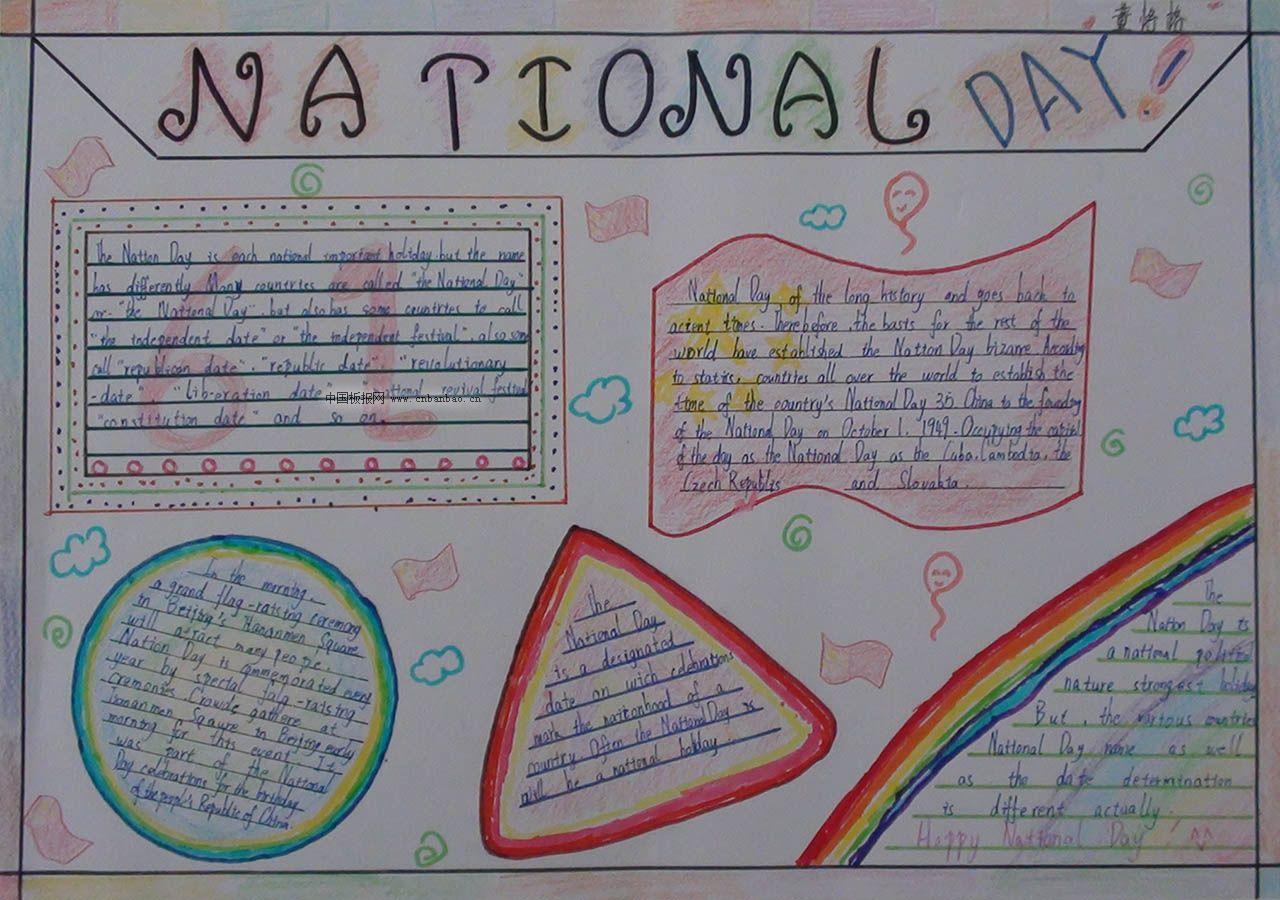 NATIONAL DAY!
The Nation Day is each national important holiday. but the name
has differently Many countries are called "the National Day"
or "the National Day". but also has some countries to call
"the independent date" or "the independent festival". also some
call "republican date". "republic date". "revolutionary
-date" "lib-eration date" national revival festival
"constitution date" and so on.
中国板报网 www.cnbanbao.cn
National Day, of the long history and goes back to
acient times. Therebefore, the basis for the rest of the
world have established the Nation Day bizarre According
to statiss, countites all over the world to establish the
time of the country's National Day 35 China to the founding
of the National Day on October 1. 1949. Occupying the capital
of the day as the National Day as the Cuba, Cambodia, the
Czech Republis and Slovakia.
In the morning.
a grand flag-raising ceremony
in Beijing's Tiananmen Square
will atract many people.
Nation Day is commemorated every
year by special fala-raising
cremonies Crowde gathere at
Tiananmen Sqaure in Beijing early
morning for this event It
was part of the National
Day celebrations for the birthday
of the people's Republic of China.
The
National Day
is a designated
date on wich celebrations
mark the naitonhood of a
country. Often the National Day is
will be a national holiday.
The
Nation Day is
a national
nature strongest holiday
But, the various countries
National Day name as well
as the date determination
is different actually.
Happy National Day ^^